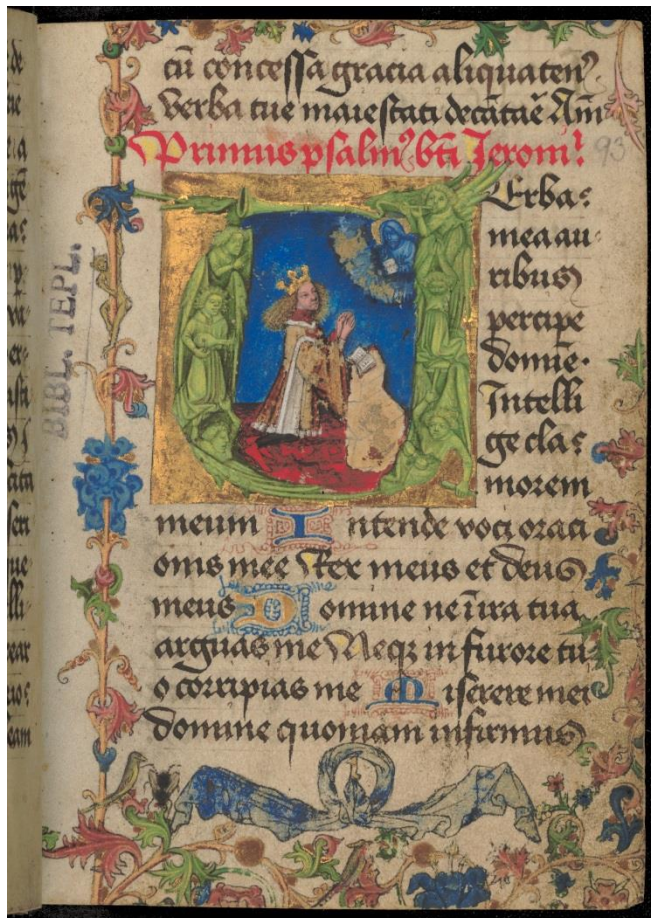 cū concessa gracia aliquaten⁹
verba tue maiestati decātaē Am̄
Primus psalm⁹ bt̄i Jeroni²
93
Verba
mea au
ribus
percipe
domīe.
Intelli
ge cla
morem
meum Intende voci oraci
onis mee Rex meus et deus
meus Domine ne ī ira tua
arguas me Neqꝫ in furore tu
o corripias me Miserere mei
domine quoniam infirmus
BIBL. TEPL.